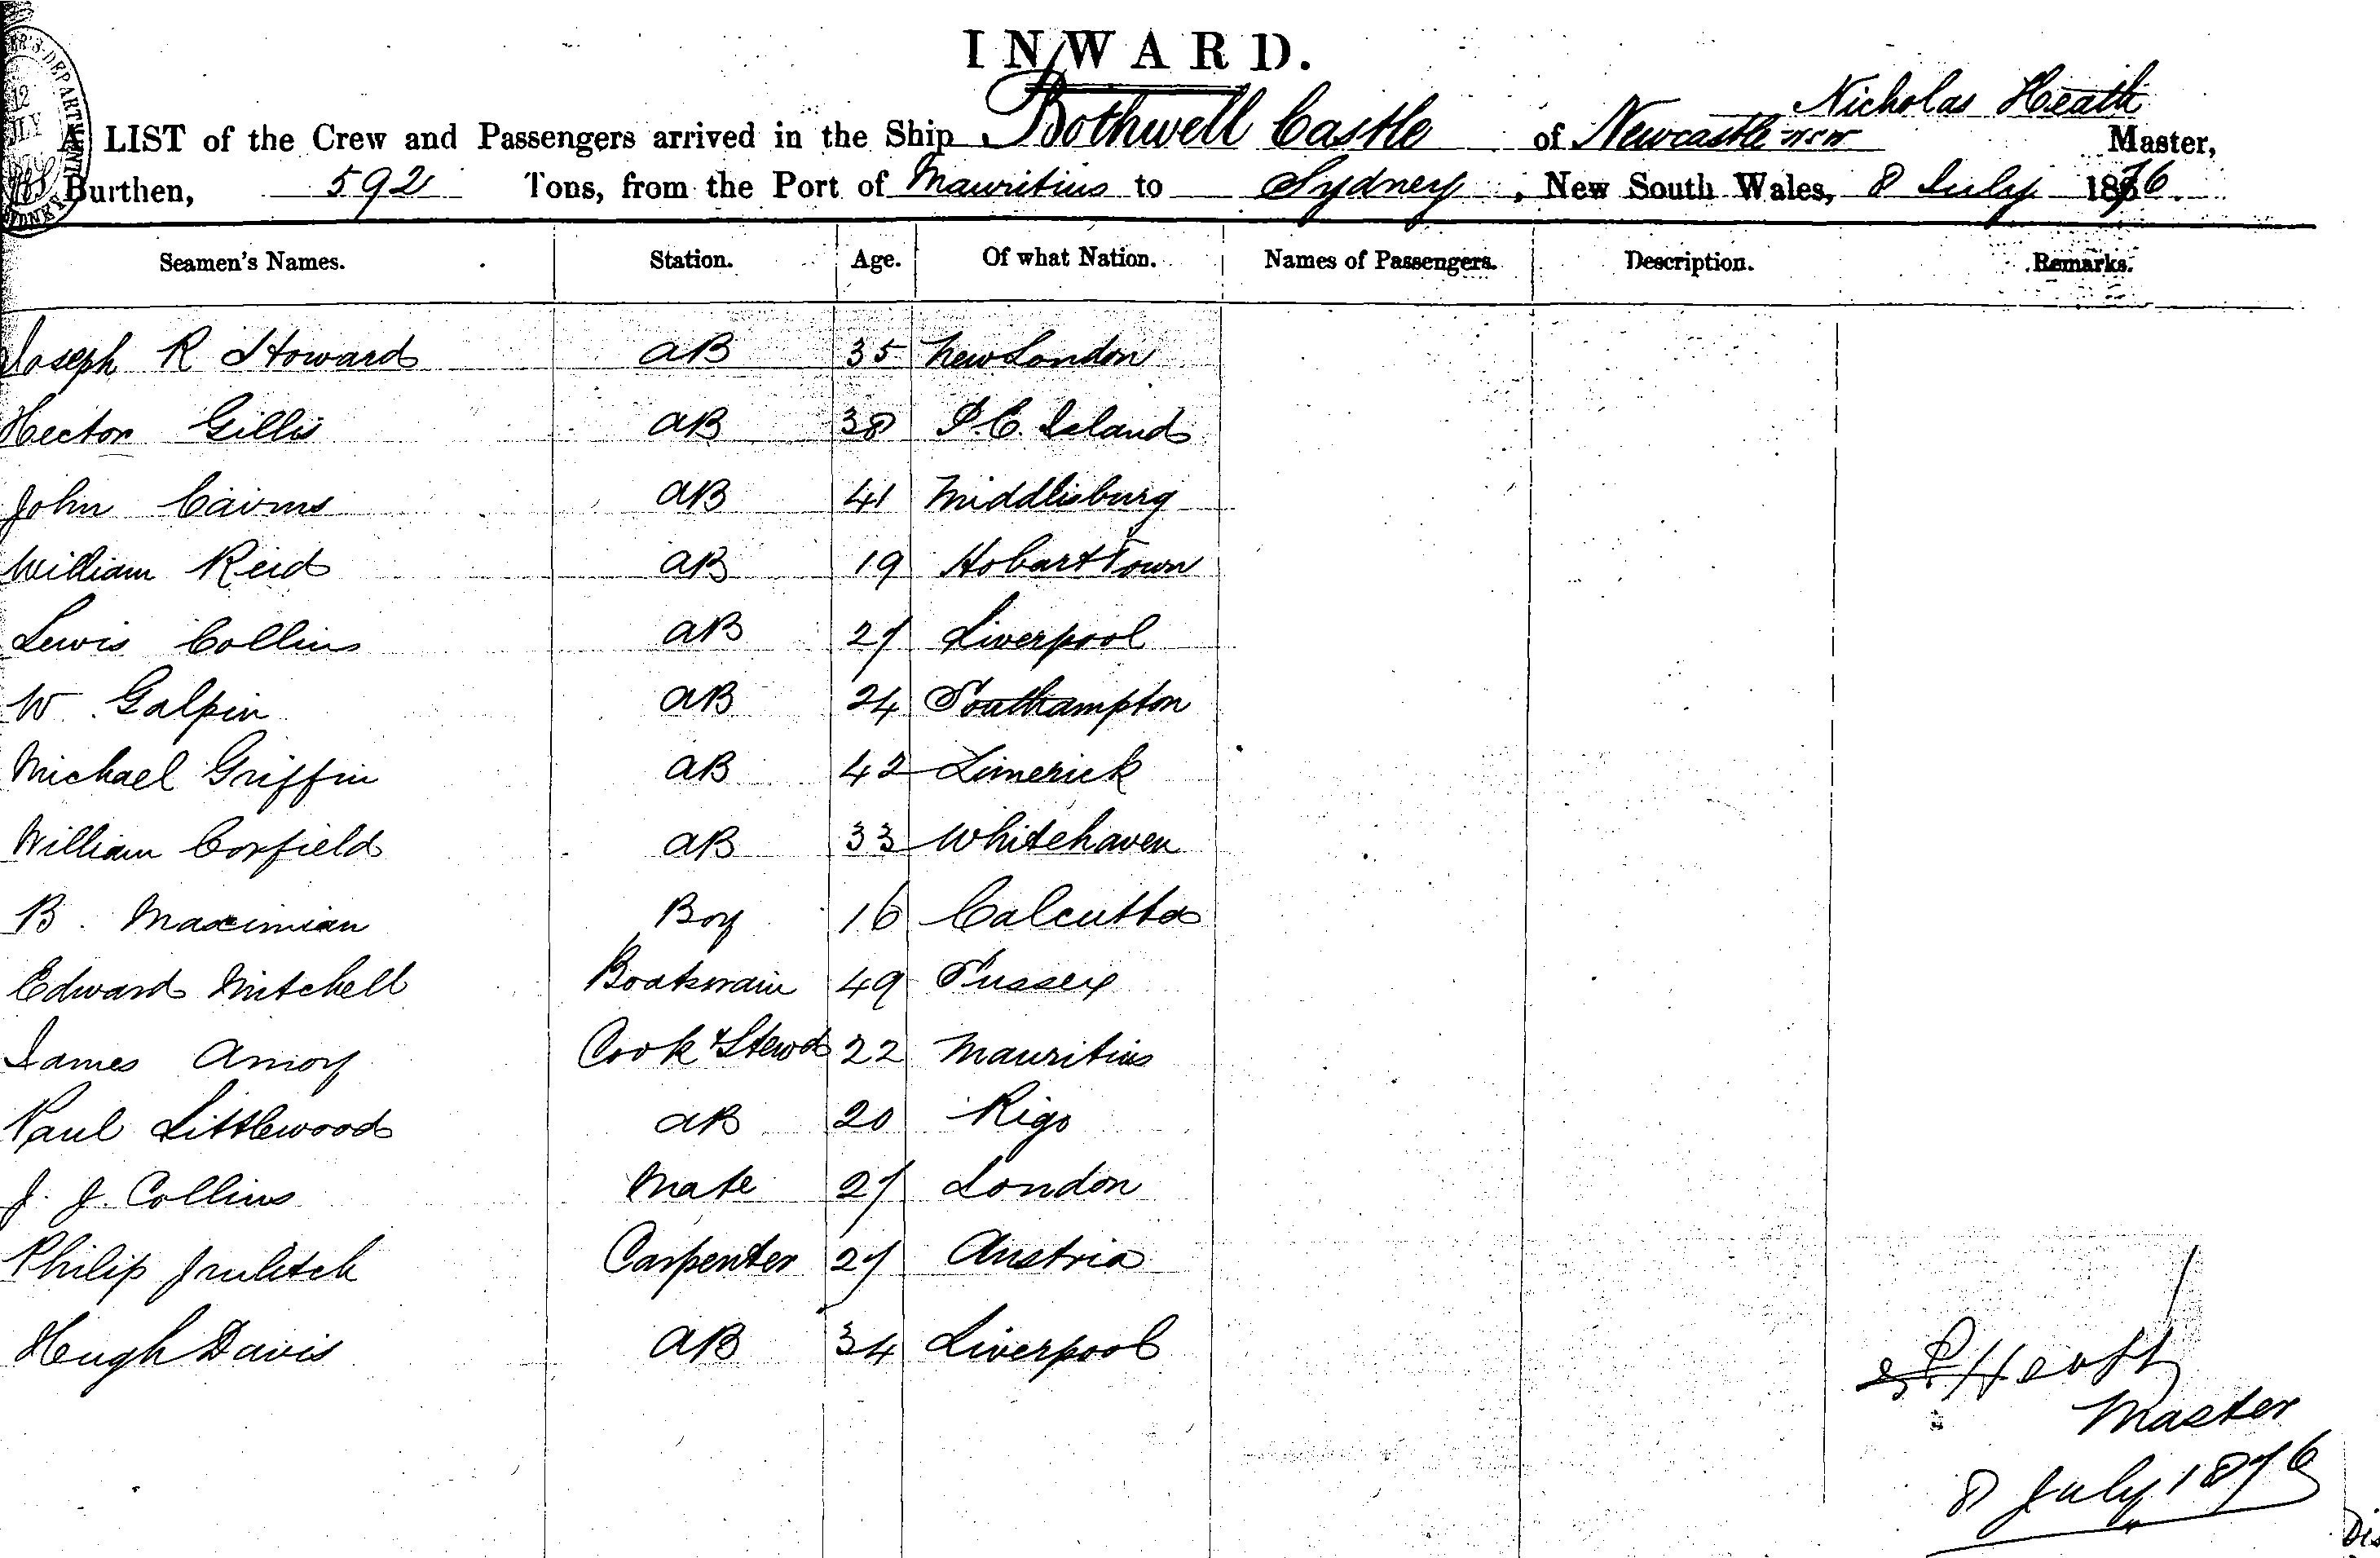 INWARD.
Nicholas Heath
A LIST of the Crew and Passengers arrived in the Ship Bothwell Castle of Newcastle NSW Master,
Burthen, 592 Tons, from the Port of Mauritius to Sydney, New South Wales, 8 July 1876.
Seamen's Names. Station. Age. Of what Nation. Names of Passengers. Description. Remarks.
Joseph R Howard AB 35 New London
Hector Gillis AB 38 P.E. Island
John Cairns AB 41 Middlisburg
William Reid AB 19 Hobart Town
Lewis Collins AB 27 Liverpool
W. Galpin AB 24 Southampton
Michael Griffin AB 42 Limerick
William Corfield AB 33 Whitehaven
B. Maximian Boy 16 Calcutta
Edward Mitchell Boatswain 49 Sussex
James Amoy Cook & Stewd 22 Mauritius
Paul Littlewood AB 20 Riga
J. J. Collins Mate 27 London
Philip 27 Carpenter Austria
Hugh Davis AB 34 Liverpool
Heath
Master
8 July 1876